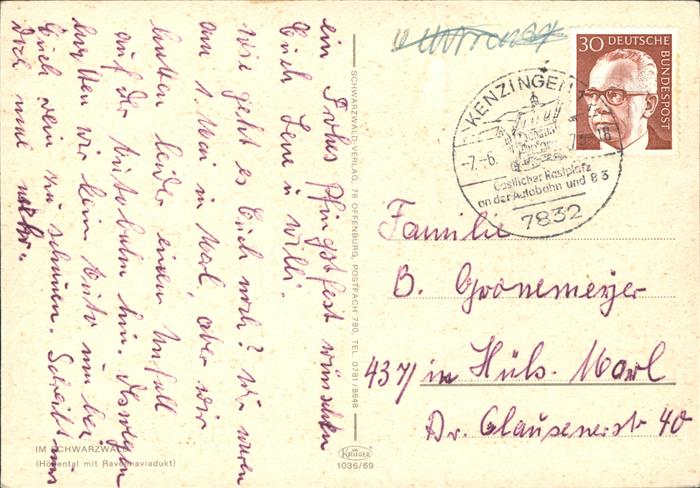 ein Frohes Pfingstfest wünschen
Euch Leni u Willi.
wie geht es Euch noch? Wir waren
am 1. Mai in Marl, aber wir
hatten leider einen Unfall
auf der Autobahn hin. Deswegen
hatten wir kein Auto um bei
Euch rein zu schauen. Schreibt uns
doch mal mehr.
SCHWARZWALD-VERLAG, 76 OFFENBURG, POSTFACH 780, TEL. 0781/8648
30 DEUTSCHE
BUNDESPOST
KENZINGEN
-7.-6. 18
Gastlicher Rastplatz
an der Autobahn und B 3
7832
Familie
B. Gronemeyer
4371 in Hüls-Marl
Dr. Clausenerstr 40
IM SCHWARZWALD
(Höllental mit Ravennaviadukt)
KRÜGER
1036/69